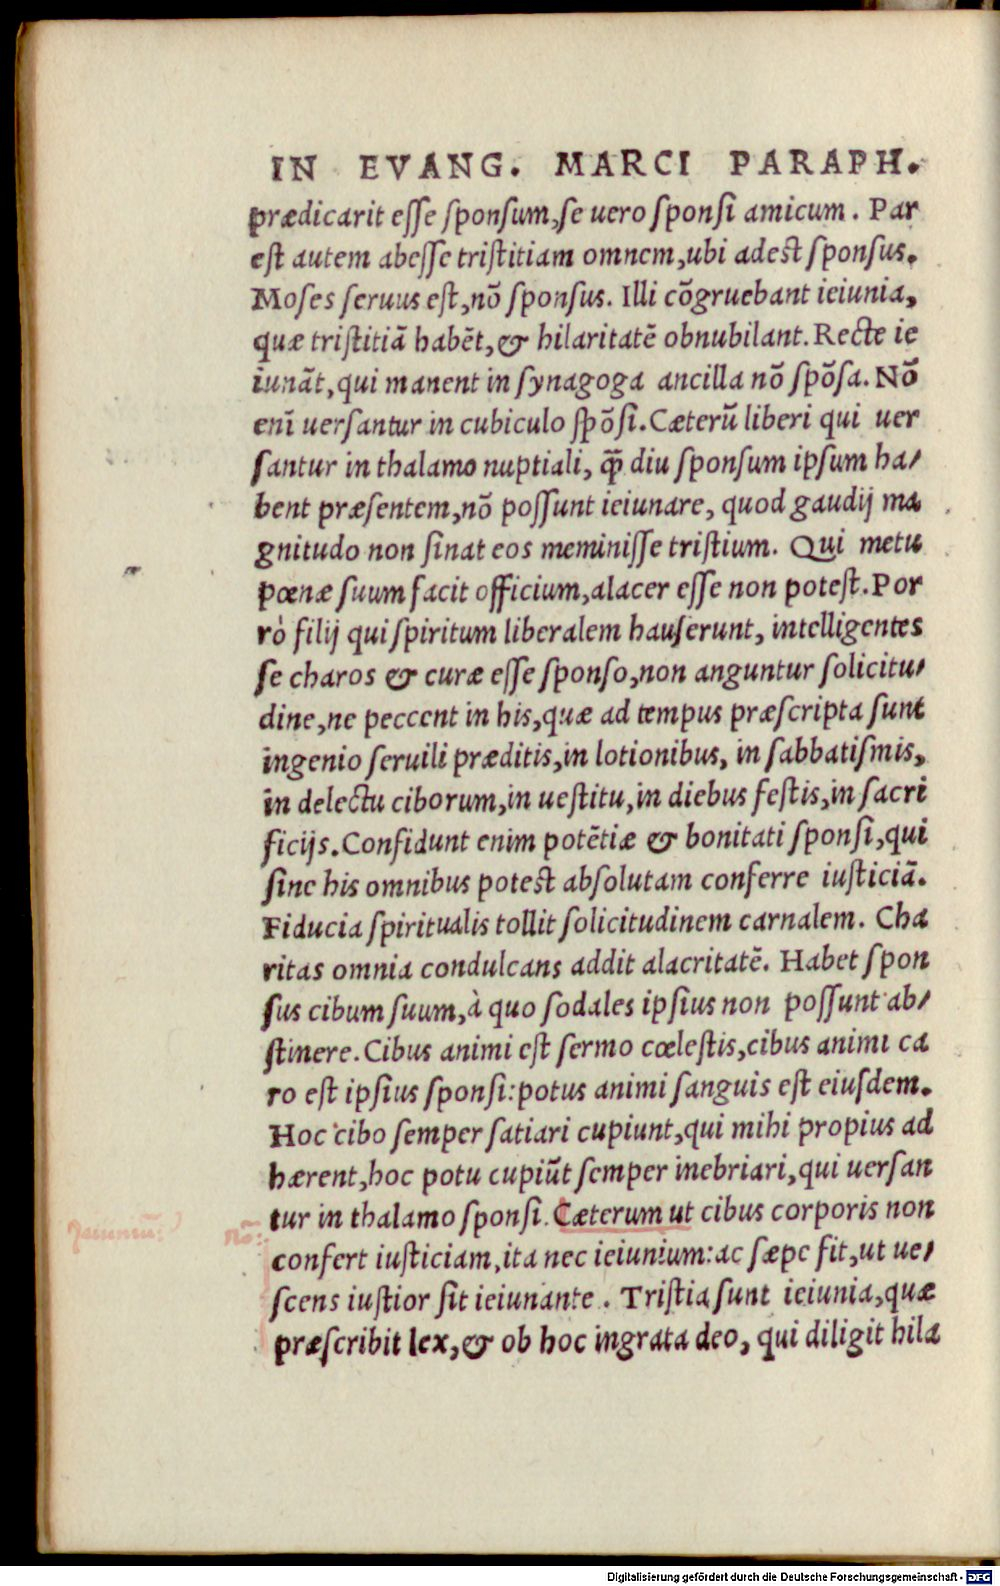 IN EVANG. MARCI PARAPH.
prædicarit esse sponsum, se uero sponsi amicum. Par
est autem abesse tristitiam omnem, ubi adest sponsus.
Moses seruus est, nõ sponsus. Illi cõgruebant ieiunia,
quæ tristitiã habẽt, & hilaritatẽ obnubilant. Recte ie
iunãt, qui manent in synagoga ancilla nõ spõsa. Nõ
enĩ uersantur in cubiculo spõsi. Cæterũ liberi qui uer
santur in thalamo nuptiali, q̃ diu sponsum ipsum ha/
bent præsentem, nõ possunt ieiunare, quod gaudij ma
gnitudo non sinat eos meminisse tristium. Qui metu
pœnæ suum facit officium, alacer esse non potest. Por
rò filij qui spiritum liberalem hauserunt, intelligentes
se charos & curæ esse sponso, non anguntur solicitu/
dine, ne peccent in his, quæ ad tempus præscripta sunt
ingenio seruili præditis, in lotionibus, in sabbatismis,
in delectu ciborum, in uestitu, in diebus festis, in sacri
ficijs. Confidunt enim potẽtiæ & bonitati sponsi, qui
sine his omnibus potest absolutam conferre iusticiã.
Fiducia spiritualis tollit solicitudinem carnalem. Cha
ritas omnia condulcans addit alacritatẽ. Habet spon
sus cibum suum, à quo sodales ipsius non possunt ab/
stinere. Cibus animi est sermo cœlestis, cibus animi ca
ro est ipsius sponsi: potus animi sanguis est eiusdem.
Hoc cibo semper satiari cupiunt, qui mihi propius ad
hærent, hoc potu cupiũt semper inebriari, qui uersan
tur in thalamo sponsi. Cæterum ut cibus corporis non
Jeiuniũ:
nõ:
confert iusticiam, ita nec ieiunium: ac sæpe fit, ut ue/
scens iustior sit ieiunante. Tristia sunt ieiunia, quæ
præscribit lex, & ob hoc ingrata deo, qui diligit hila
Digitalisierung gefördert durch die Deutsche Forschungsgemeinschaft - DFG